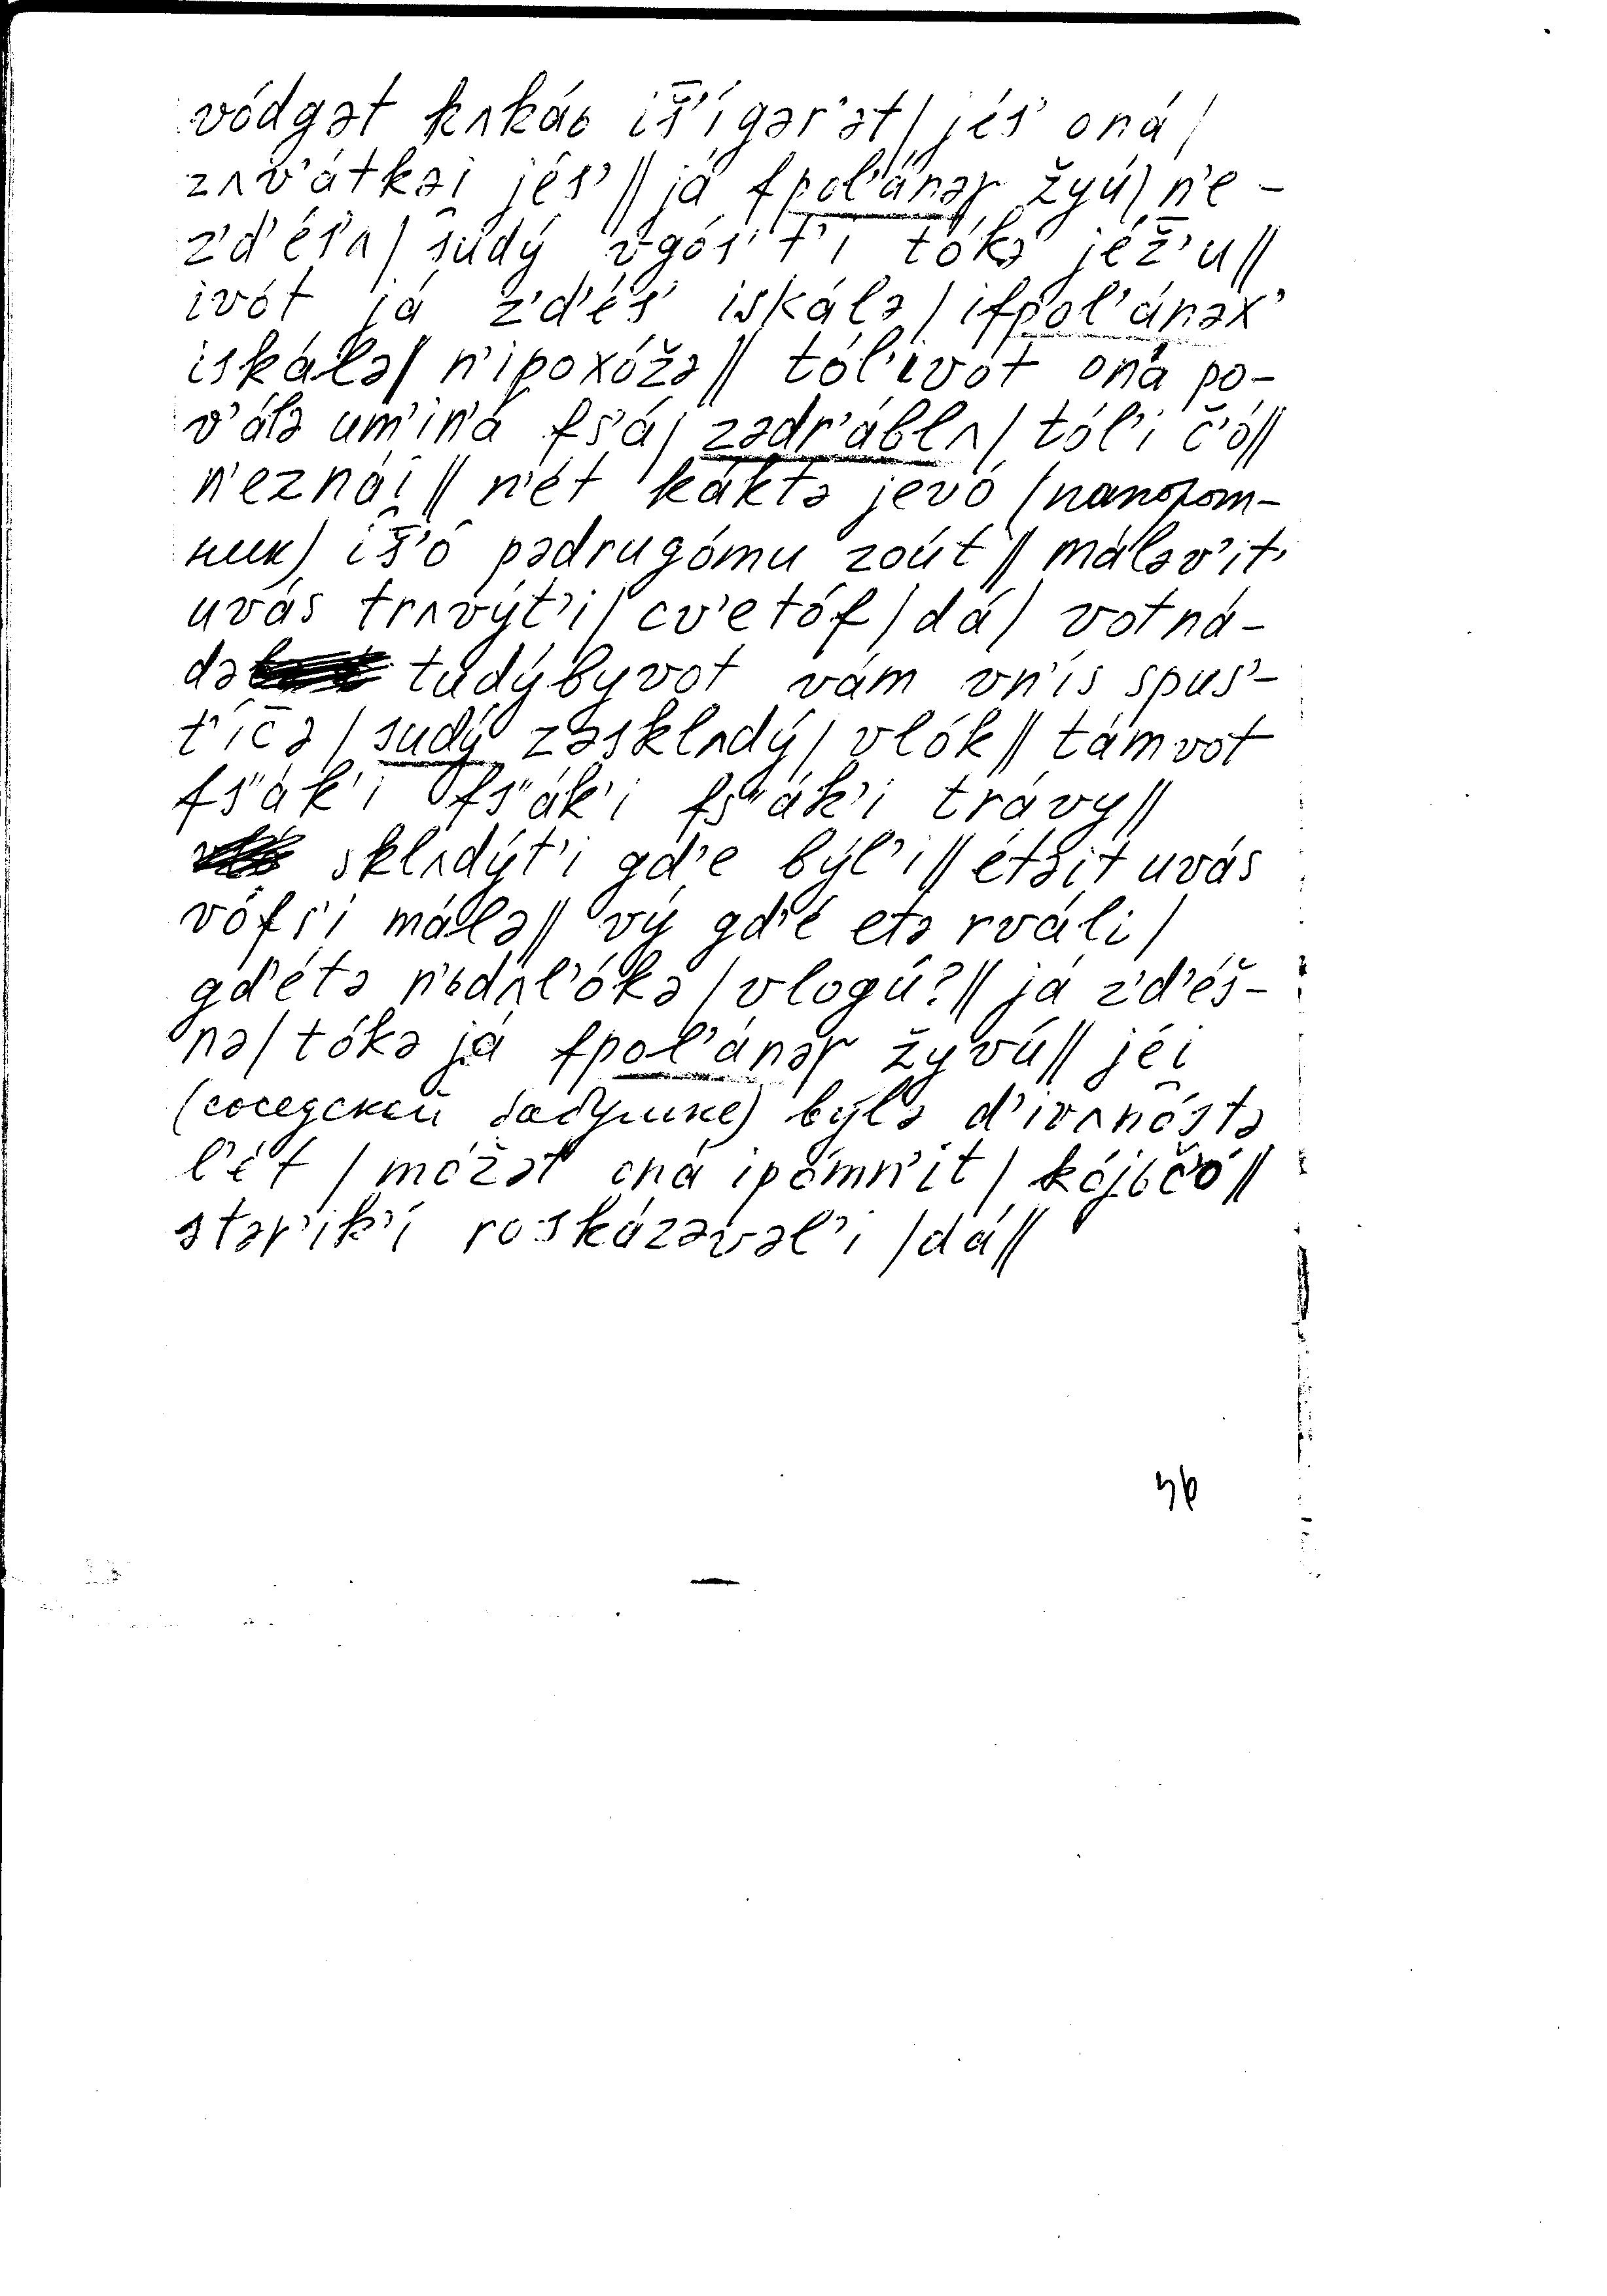 vódgət kʌkáə iš̄’ígər’ət / jés’ oná /
zʌv’átkəi jés’ // já fpol’ánəx žyú / n’e-
z’d’és’ʌ / s’udý vgós’t’i tókə jéž̄’u //
ivót já z’d’és’ iskálə / ifpol’ánəx
iskálə / n’ipoxóžə // tól’ivót oná po-
v’álə um’in’á fs’á / zədr’áblʌ / tól’i č’ó //
n’eznái // n’ét káktə jevó (папором-
ник) iš̄’ó pədrugómu zoút // máləv’it’
uvás trʌvýt’i / cv’etóf / dá / votná-
də tudýbyvot vám vn’is spus’-
t’íc̄ə / sudý zəsklʌdý / vlók // támvot
fs’ák’i fs’ák’i fs’ák’i trávy //
sklʌdýt’i gd’e býl’i // étəit uvás
vófs’i málə // vý gd’é etə rváli /
gd’étə n’ьdʌl’ókə / vlogú? // já z’d’éš-
nə / tókə já fpol’ánəx žyvú // jéi
(соседской бабушке) býlə d’ivʌnóstə
l’ét / móžət oná ipómn’it / kójьčó //
stər’ik’í roskázəvəl’i / dá //